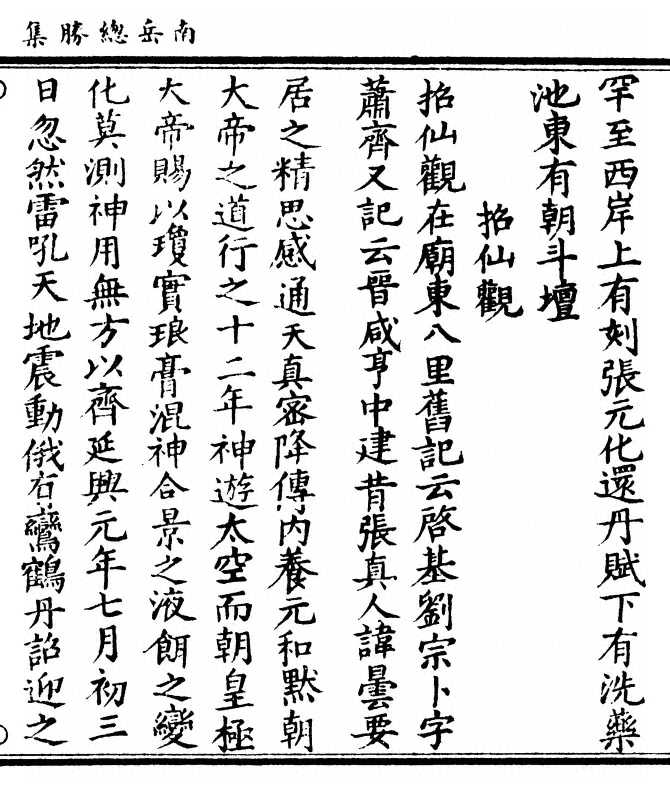 南岳總勝集
罕至西岸上有刻張元化還丹賦下有洗藥
池東有朝斗壇
招仙觀
招仙觀在廟東八里舊記云啓基劉宗卜字
蕭齊又記云晉咸亨中建昔張真人諱曇要
居之精思感通天真密降傳内養元和默朝
大帝之道行之十二年神遊太空而朝皇極
大帝賜以瓊實琅膏混神合景之液餌之變
化莫測神用無方以齊延興元年七月初三
日忽然雷吼天地震動俄有鸞鶴丹詔迎之